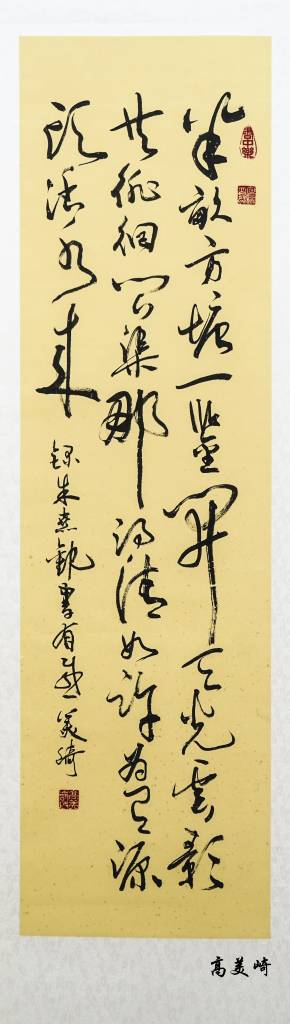 半畝方塘一鑒開天光雲影
共徘徊問渠那得清如許為有源
頭活水來
錄朱熹觀書有感 美崎
高美崎